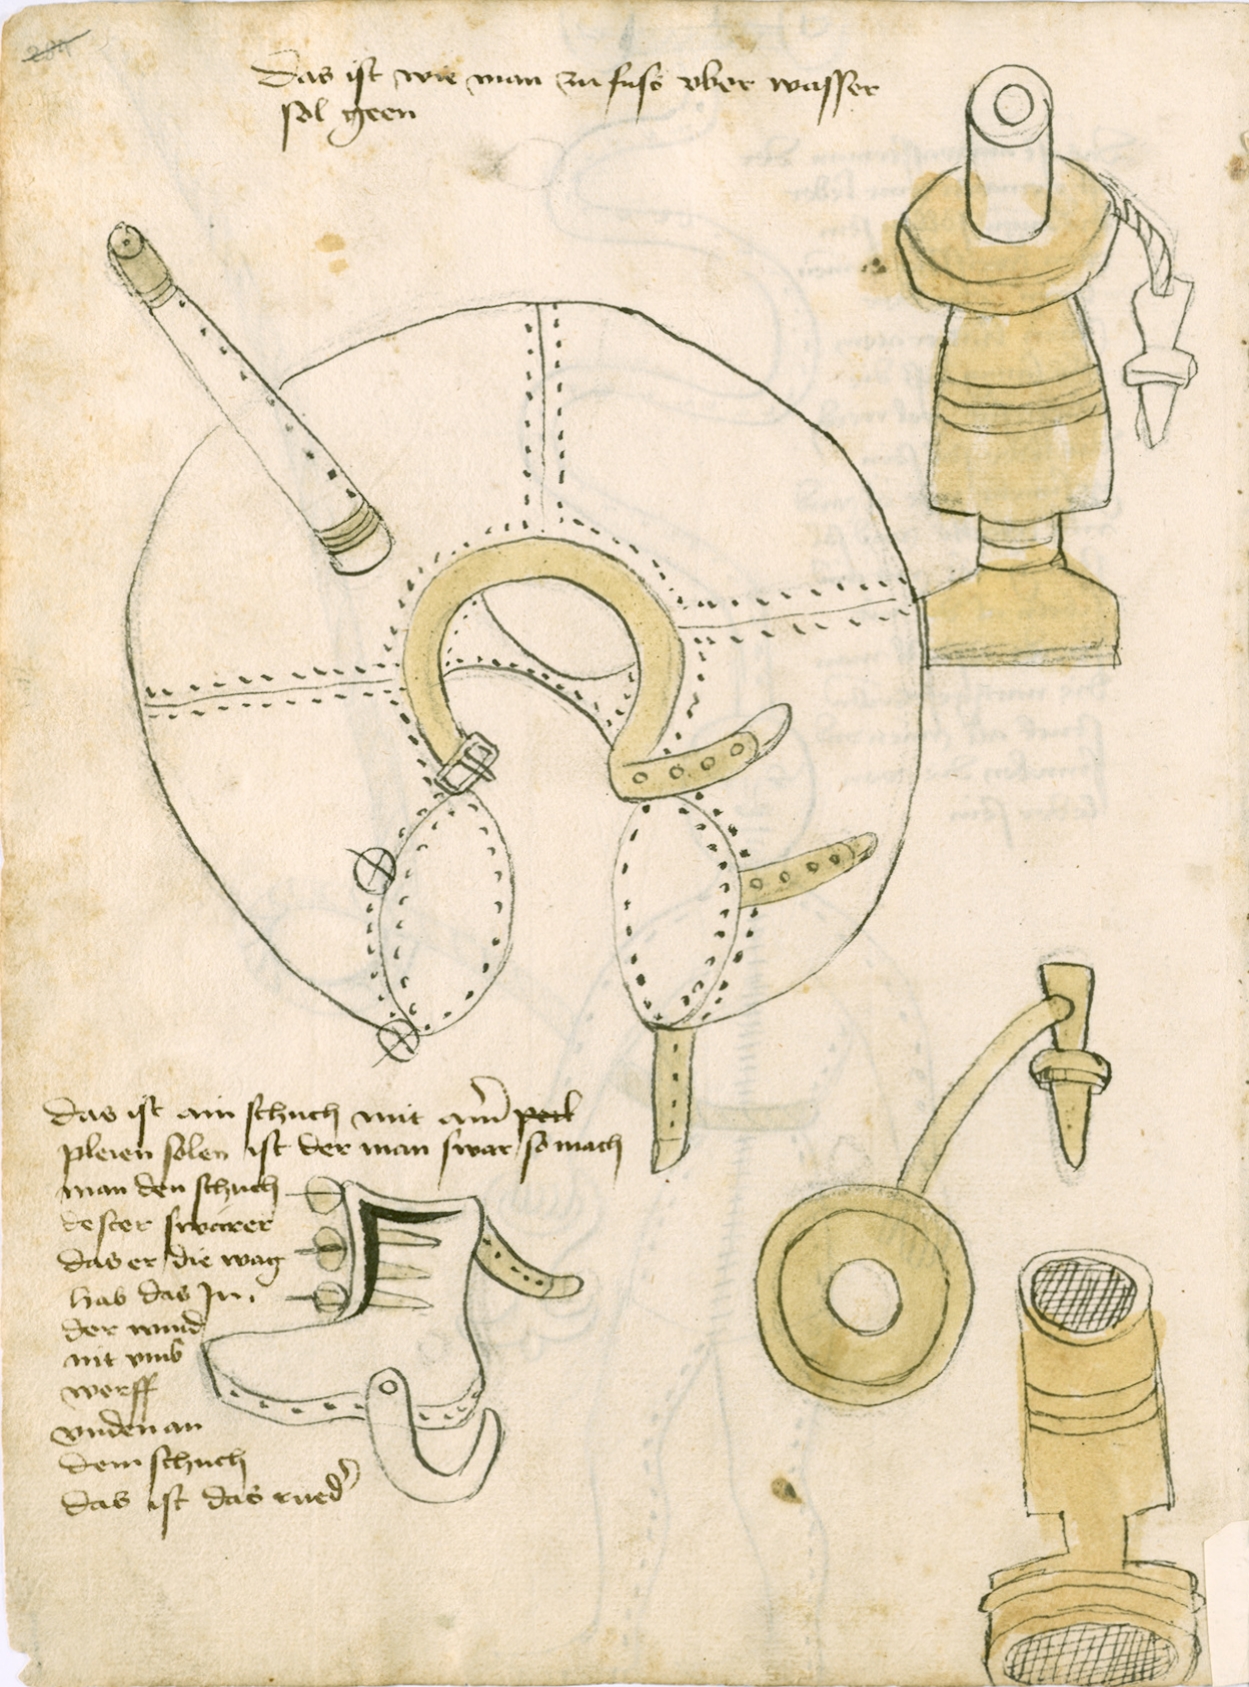 Das ist wie man zu fuss vber wasser
sol geen
das ist ain schuch mit aim peil
pleien solen ist der man swar so mach
man den schuch
dester swärer
das er die wag
hab das Im
der wind
nit vmb
werff
vnden an
dem schuch
das ist das rued